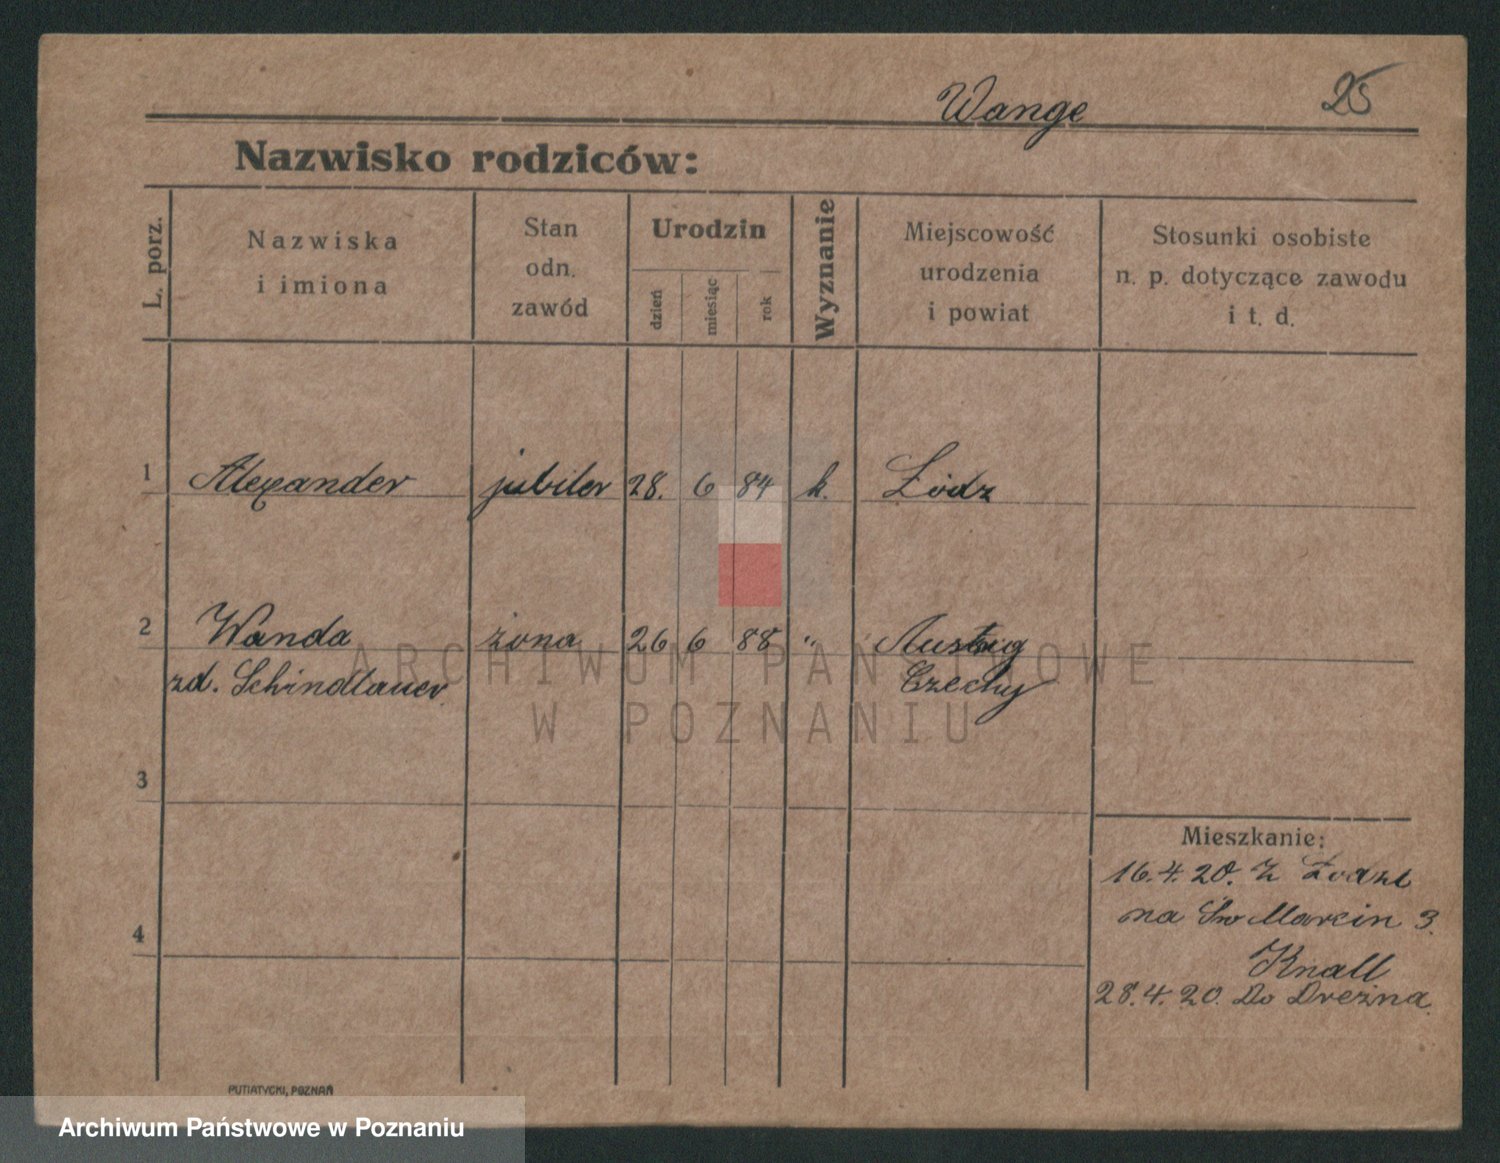 Wange
25
Nazwisko rodziców:
L. porz.
Nazwiska
i imiona
Stan
odn.
zawód
Urodzin
dzień
miesiąc
rok
Wyznanie
Miejscowość
urodzenia
i powiat
Stosunki osobiste
n. p. dotyczące zawodu
i t. d.
1 Alexander jubiler 28. 6 84 k. Łódz
2 Wanda żona 26 6 88 " Aussig
zd. Schindlauer Czechy
3
Mieszkanie:
16.4.20. Z Łodzi
na Św Marcin 3.
4
Knall
28.4.20. Do Drezna.
PUTIATYCKI, POZNAŃ
ARCHIWUM PAŃSTWOWE
W POZNANIU
Archiwum Państwowe w Poznaniu